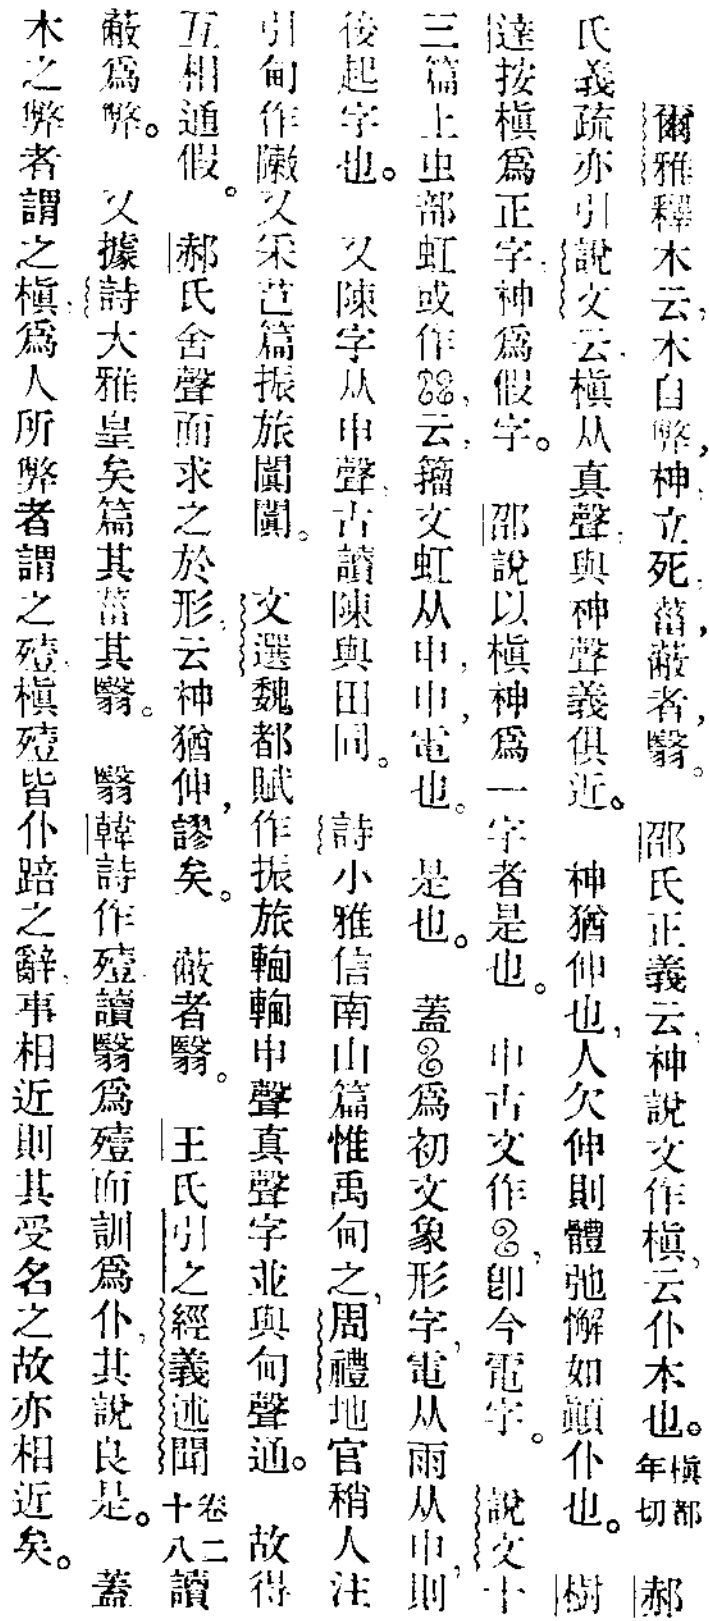 爾雅釋木云，木自獘，神，立死，菑，蔽者，翳。　邵氏正義云，神說文作槇，云仆木也。槇都年切　郝
氏義疏亦引說文云，槇从真聲，與神聲義俱近。　神猶伸也，人欠伸則體弛懈如顚仆也。　樹
達按槇爲正字，神爲假字。　邵說以槇神爲一字者是也。　申古文作，卽今電字。　說文十
三篇上虫部虹或作，云，籀文虹从申，申，電也。　是也。　蓋爲初文象形字，電从雨从申，則
後起字也。　又陳字从申聲，古讀陳與田同。　詩小雅信南山篇惟禹甸之，周禮地官稍人注
引甸作敶又采芑篇振旅闐闐。　文選魏都賦作振旅輷輷申聲真聲字並與甸聲通。　故得
互相通假。　郝氏舍聲而求之於形，云神猶伸，謬矣。　蔽者翳。　王氏引之經義述聞卷二十八讀
蔽爲獘。　又據詩大雅皇矣篇其菑其翳。　翳韓詩作殪，讀翳爲殪而訓爲仆，其說良是。　蓋
木之獘者謂之槇，爲人所獘者謂之殪，槇殪皆仆踣之辭，事相近則其受名之故亦相近矣。